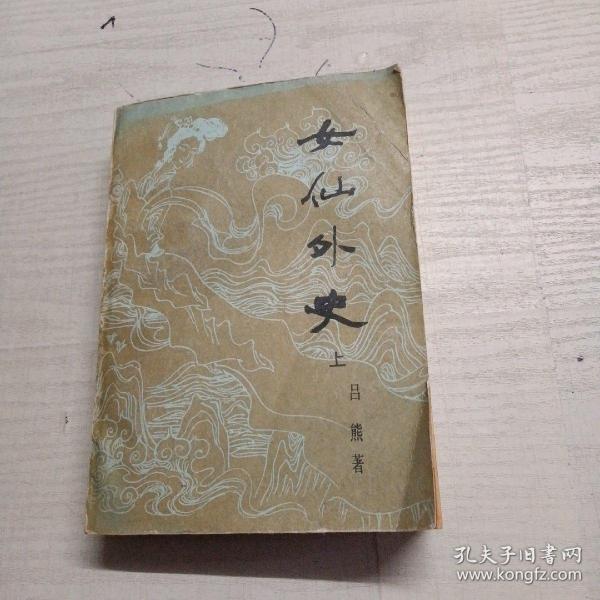 女仙外史
上
吕熊著
孔夫子旧书网
www.kongfz.com